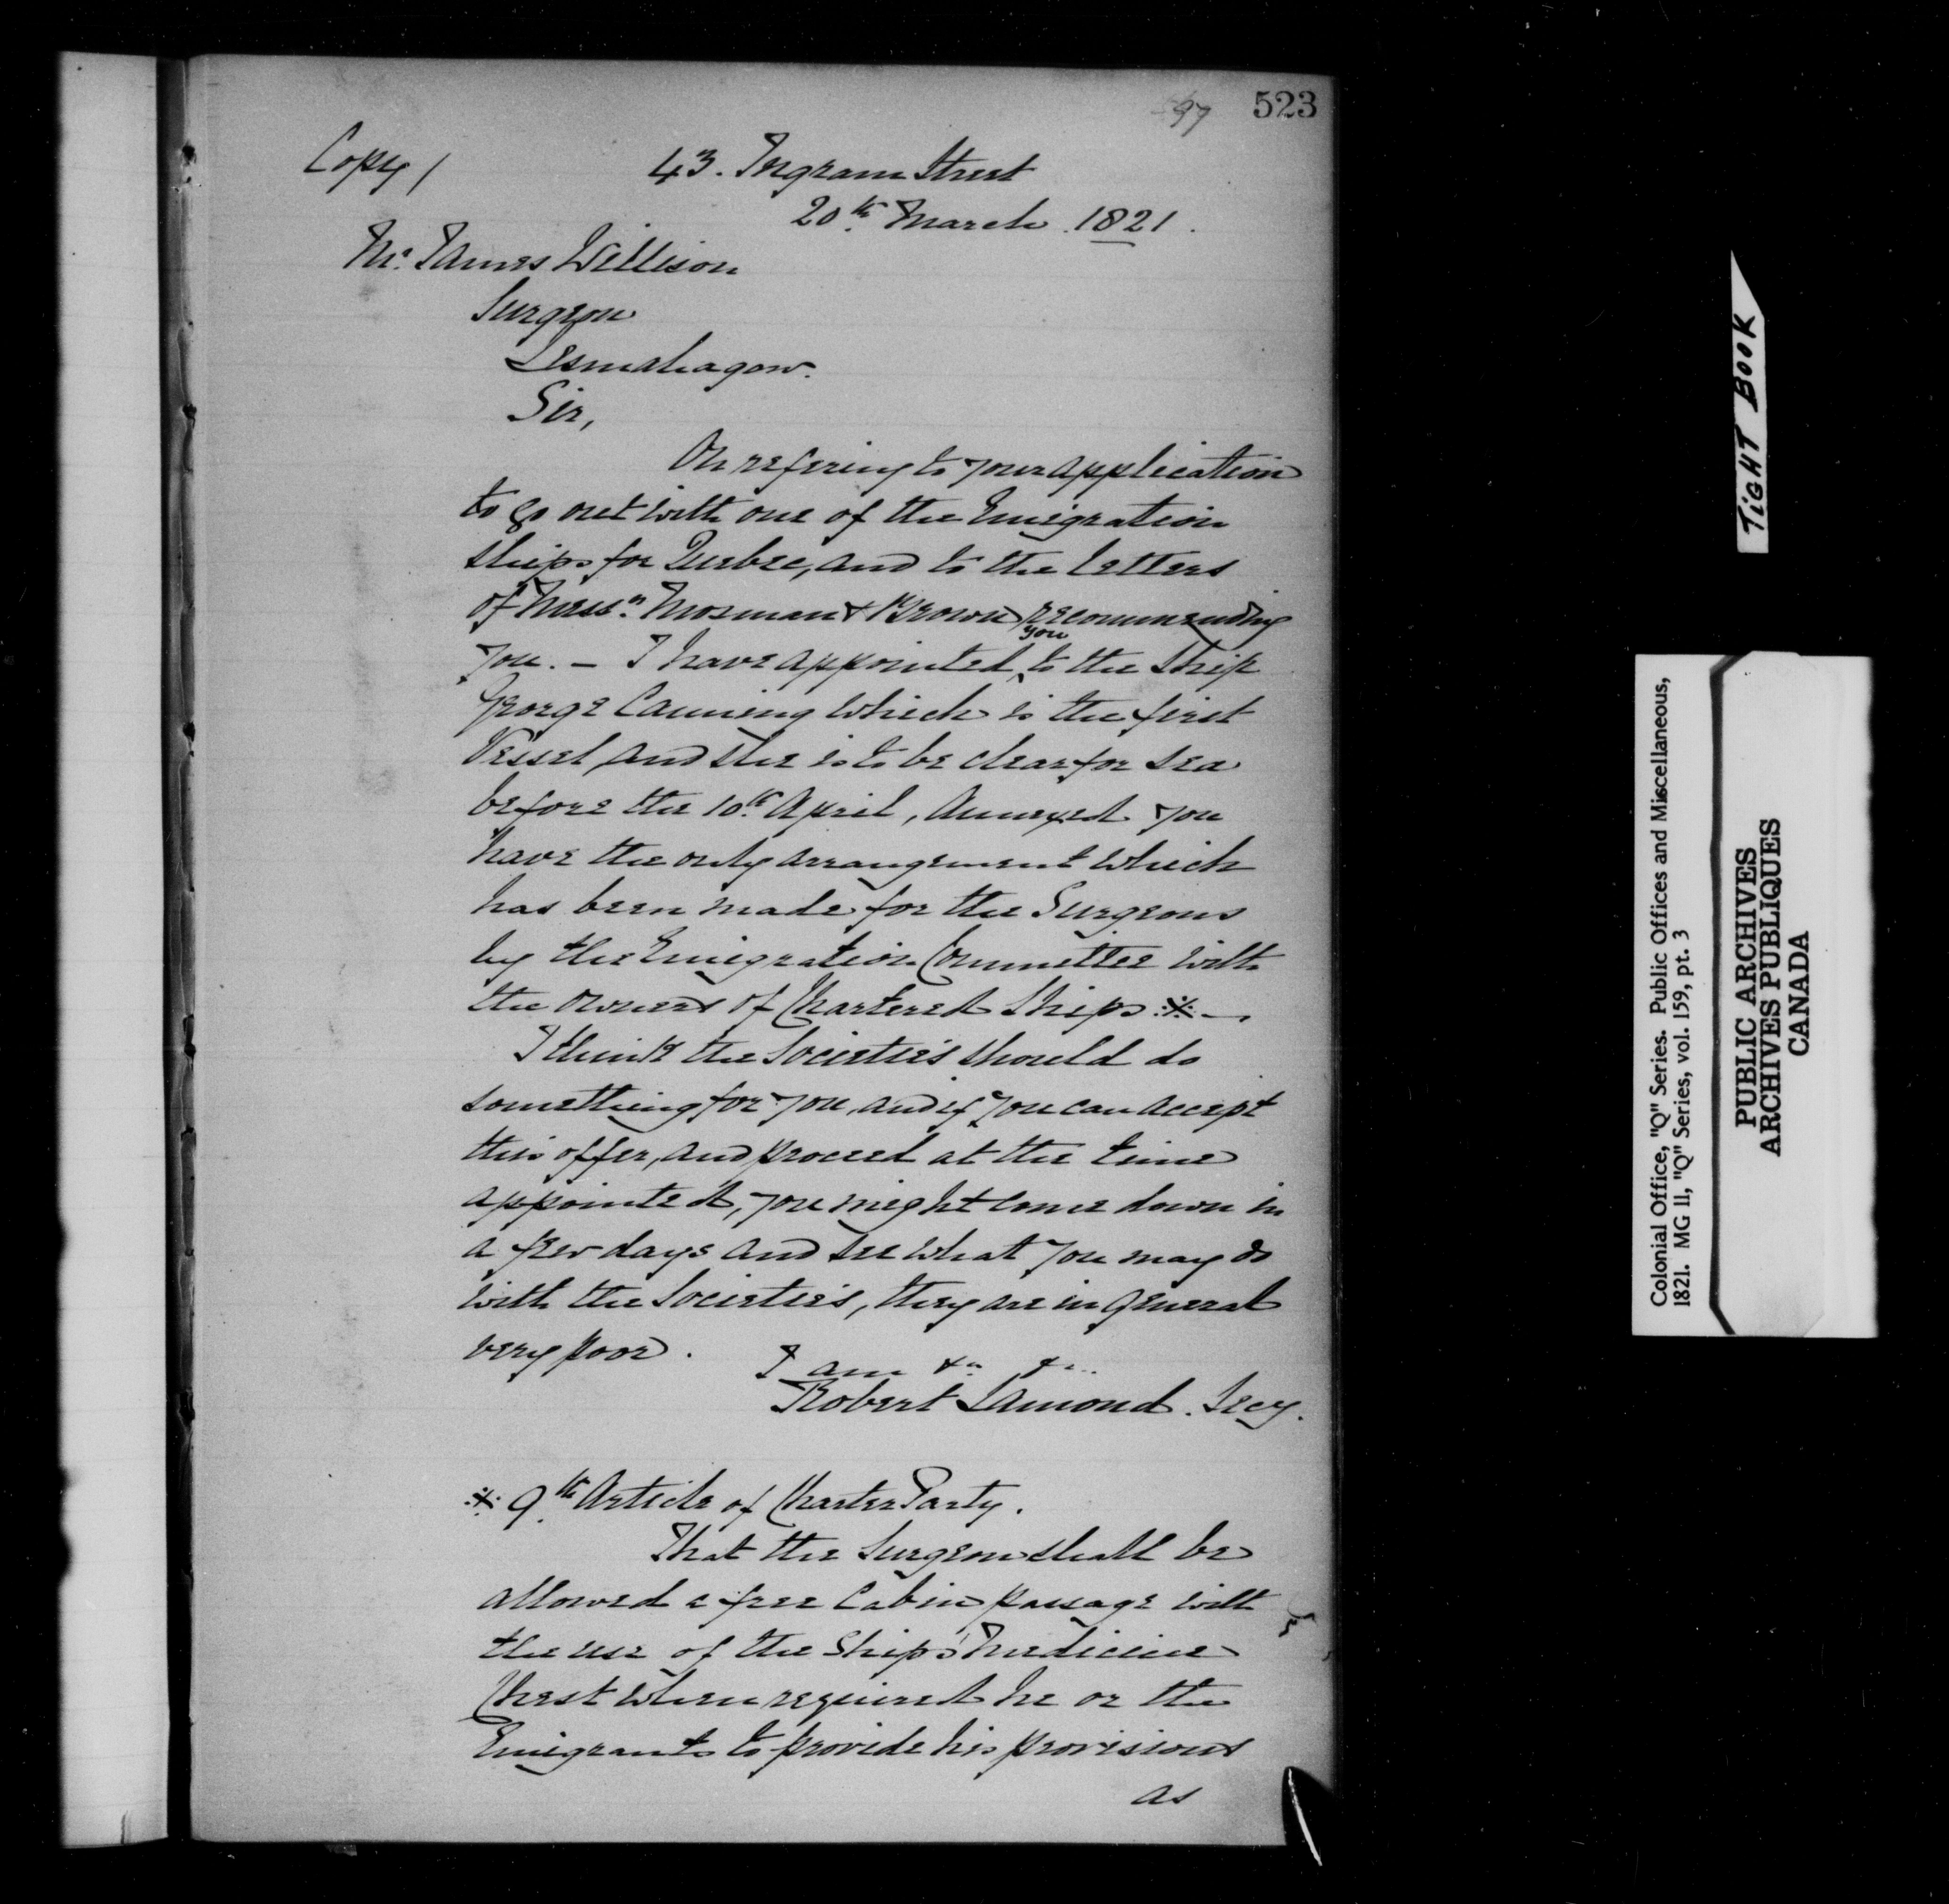 597 523
Copy/ 43. Ingram Street
20th March 1821.
Mr. James Willison
Surgeon
Lesmahagow.
Sir,
On refering to your application
to go out with one of the Emigration
ships for Quebec, and to the letters
of Messrs. Mosman & Brown recommending
you. – I have appointed you to the Ship
George Canning which is the first
Vessel and she is to be clear for sea
before the 10th April, annexed you
have the only arrangement which
has been made for the Surgeons
by the Emigration Committee with
the owners of Chartered Ships ※ –
I think the Societies should do
something for you, and if you can accept
this offer, and proceed at the time
appointed, you might come down in
a few days and see what you may do
with the Societies, they are in general
very poor.
I am &c &c.
Robert Lamond. Secy.
※ 9th Article of Charter Party.
That the Surgeon shall be
allowed a free Cabin passage with
the use of the Ship's Medicine
Chest when required he or the
Emigrants to provide his provisions
as
TIGHT BOOK
Colonial Office, "Q" Series. Public Offices and Miscellaneous,
1821. MG 11, "Q" Series, vol. 159, pt. 3
PUBLIC ARCHIVES
ARCHIVES PUBLIQUES
CANADA